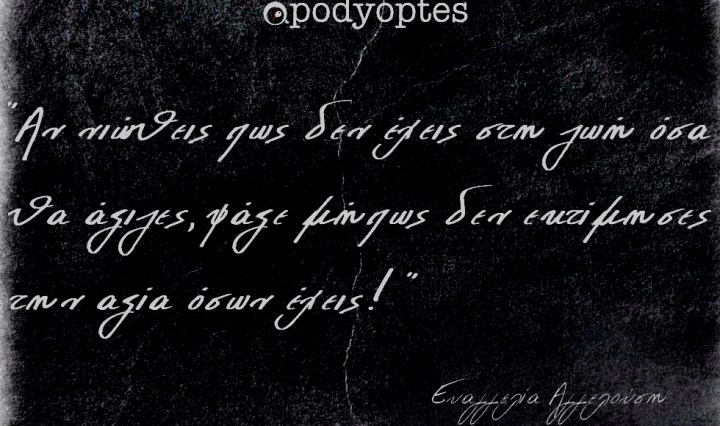 apodyoptes
"Αν νιώθεις πως δεν έχεις στη ζωή όσα
θα άξιζες, ψάξε μήπως δεν εκτίμησες
την αξία όσων έχεις!"
Ευαγγελία Αγγελούση